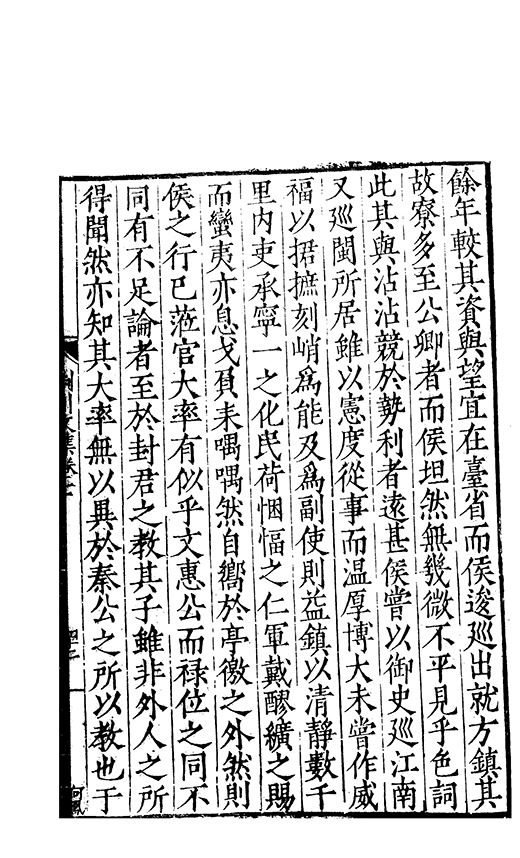 餘年較其資與望宜在臺省而侯逡廵出就方鎮其
故寮多至公卿者而侯坦然無幾微不平見乎色詞
此其與沾沾競於勢利者遠甚侯嘗以御史廵江南
又廵閩所居雖以憲度從事而温厚博大未嘗作威
福以捃摭刻峭爲能及爲副使則益鎮以清靜數千
里内吏承寧一之化民荷悃愊之仁軍戴醪纊之賜
而蠻夷亦息戈負耒喁喁然自嚮於亭徼之外然則
侯之行已蒞官大率有似乎文惠公而禄位之同不
同有不足論者至於封君之教其子雖非外人之所
得聞然亦知其大率無以異於秦公之所以教也于